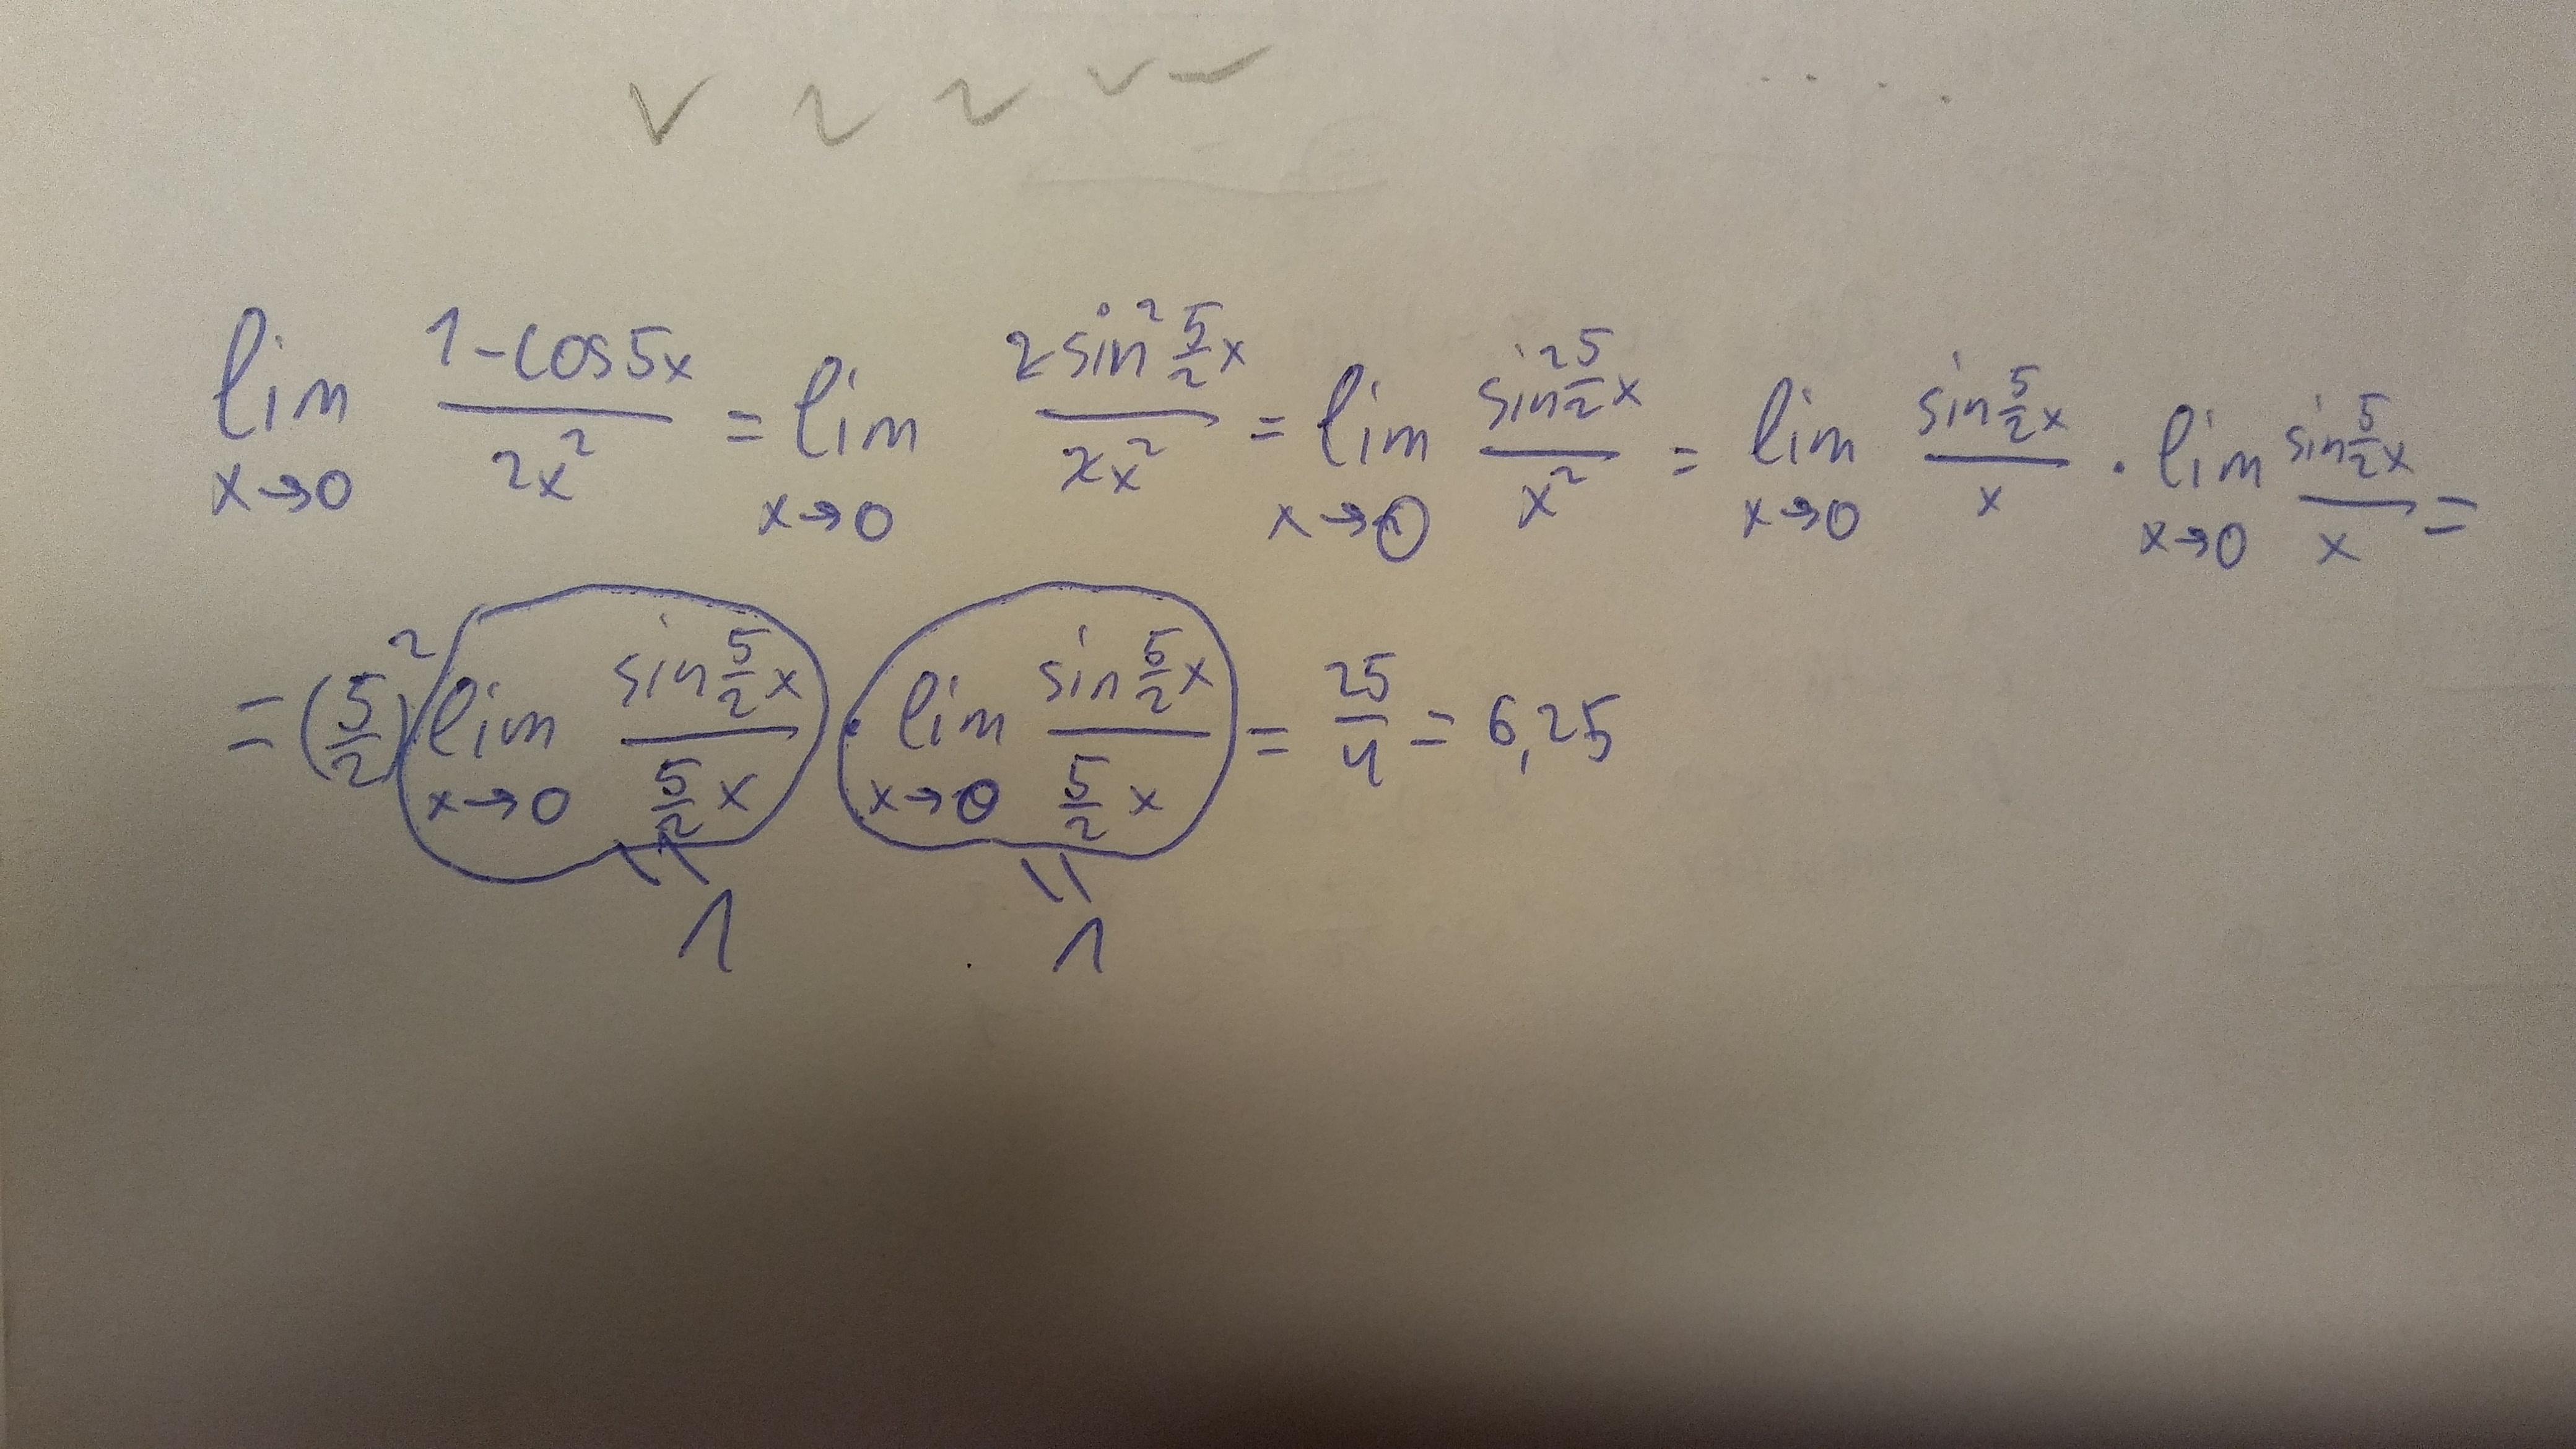 lim x→0 (1-cos5x)/(2x²) = lim x→0 (2sin² 5/2 x)/(2x²) = lim x→0 (sin² 5/2 x)/(x²) = lim x→0 (sin 5/2 x)/x · lim x→0 (sin 5/2 x)/x =
= (5/2)² lim x→0 (sin 5/2 x)/(5/2 x) · lim x→0 (sin 5/2 x)/(5/2 x) = 25/4 = 6,25
= 1 = 1